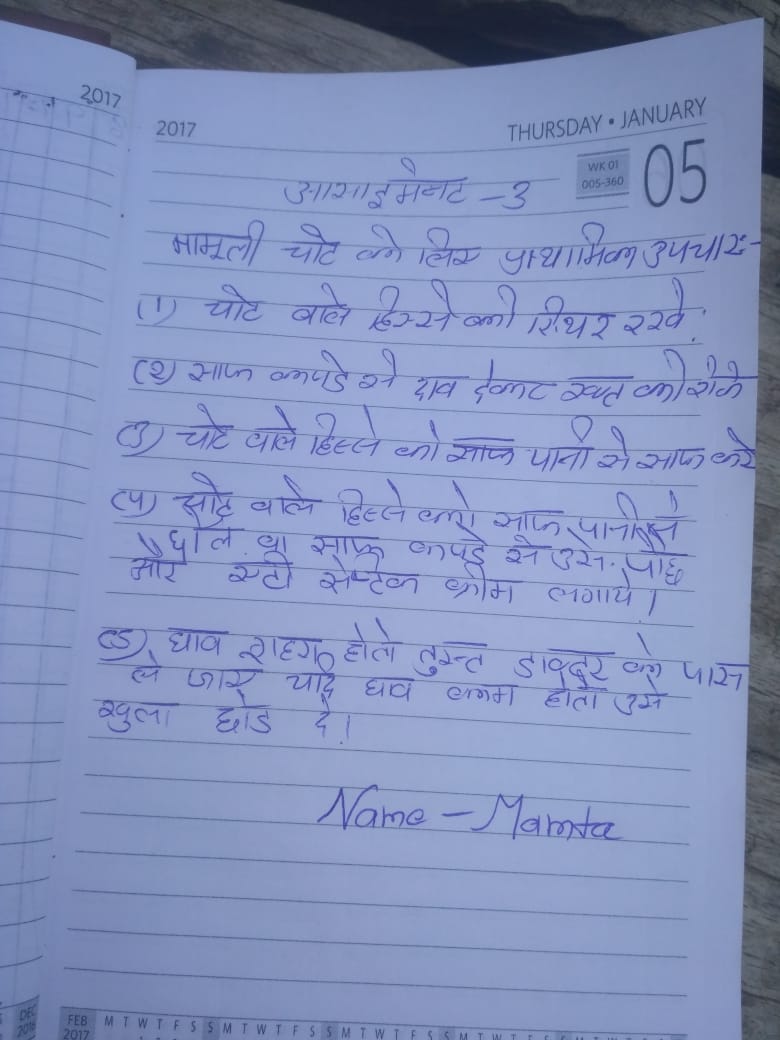 2017
2017
THURSDAY • JANUARY
WK 01
005-360
05
आसाइमेन्ट -3
मामूली चोट के लिए प्राथमिक उपचारः-
(1) चोट वाले हिस्से को स्थिर रखे.
(2) साफ कपडे से दाव देकट रक्त को रोके
(3) चोट वाले हिस्से को साफ पानी से साफ करे
(4) चोट वाले हिस्से को साफ पानी से
धोले वा साफ कपडे से उसे पोछ
और एन्टी सेप्टिक क्रीम लगाये।
(5) घाव गहरा होतो तुरन्त डाक्टर के पास
ले जाए यदि घाव कम होतो उसे
खुला छोड दे।
Name - Mamta
DEC
2016
FEB
2017
M T W T F S S M T W T F S S M T W T F S S M T W T F S S